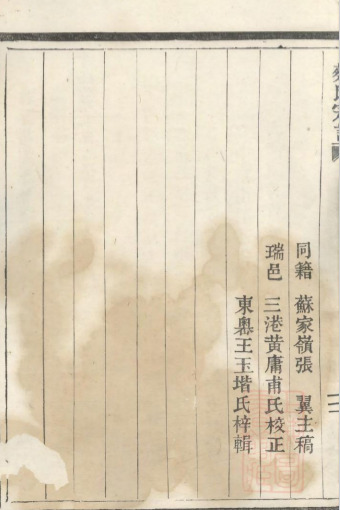 氏宗譜
同籍 蘇家嶺張 翼主稿
瑞邑 三港黄庸甫氏校正
東粵王玉堦氏梓輯